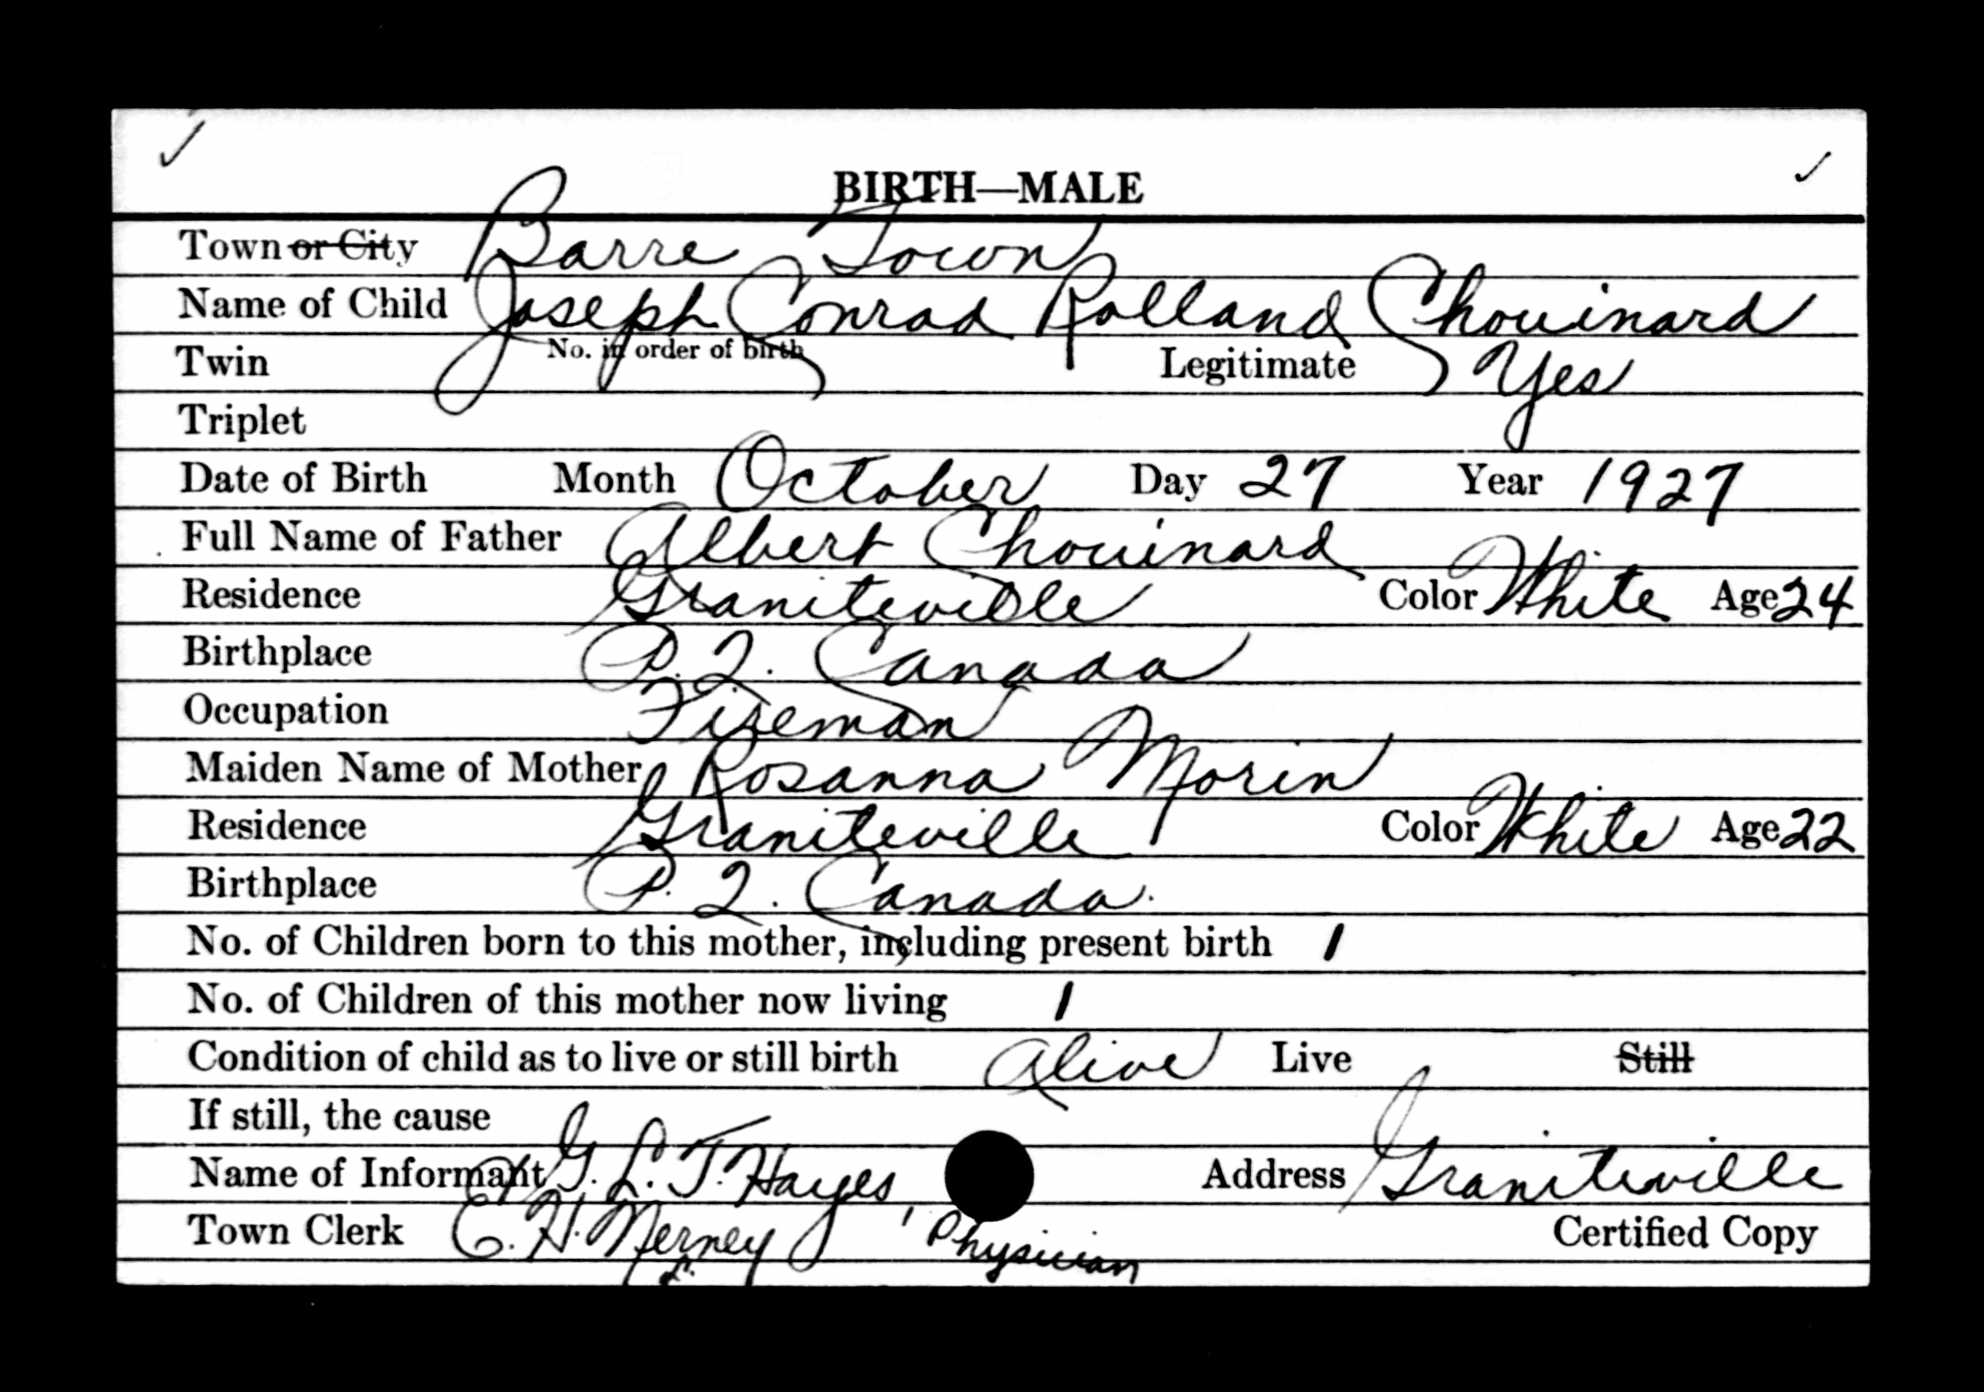 BIRTH—MALE
Town or City Barre Town
Name of Child Joseph Conrad Rolland Chouinard
Twin No. in order of birth Legitimate Yes
Triplet
Date of Birth Month October Day 27 Year 1927
Full Name of Father Albert Chouinard
Residence Graniteville Color White Age 24
Birthplace P.Q. Canada
Occupation Fireman
Maiden Name of Mother Rosanna Morin
Residence Graniteville Color White Age 22
Birthplace P.Q. Canada.
No. of Children born to this mother, including present birth 1
No. of Children of this mother now living 1
Condition of child as to live or still birth Alive Live Still
If still, the cause
Name of Informant G. L. T. Hayes, Physician Address Graniteville
Town Clerk E. H. Nerney Certified Copy